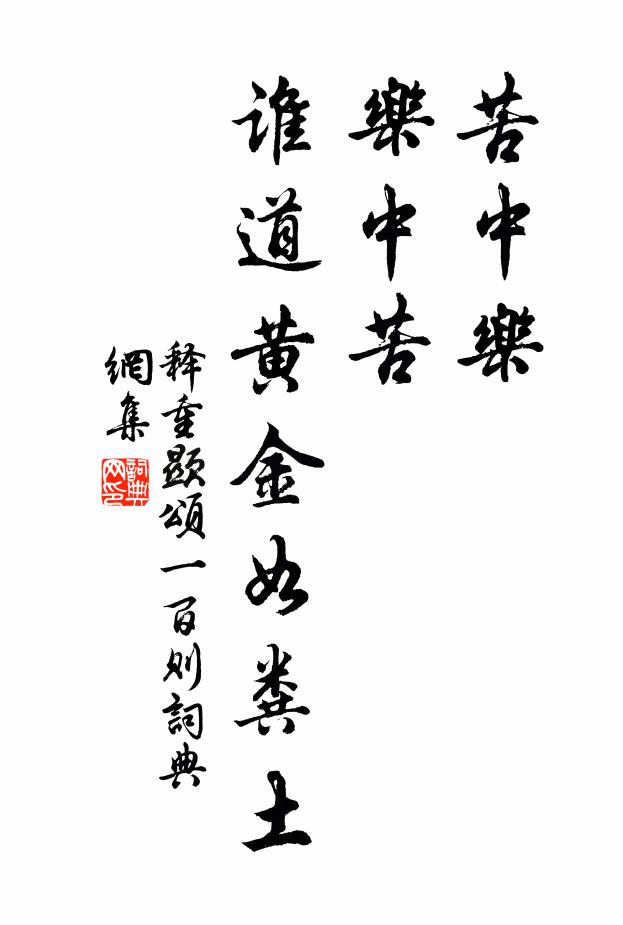 苦中樂
樂中苦
誰道黃金如糞土
释重顯頌一百则詞典
網集
詞典网印